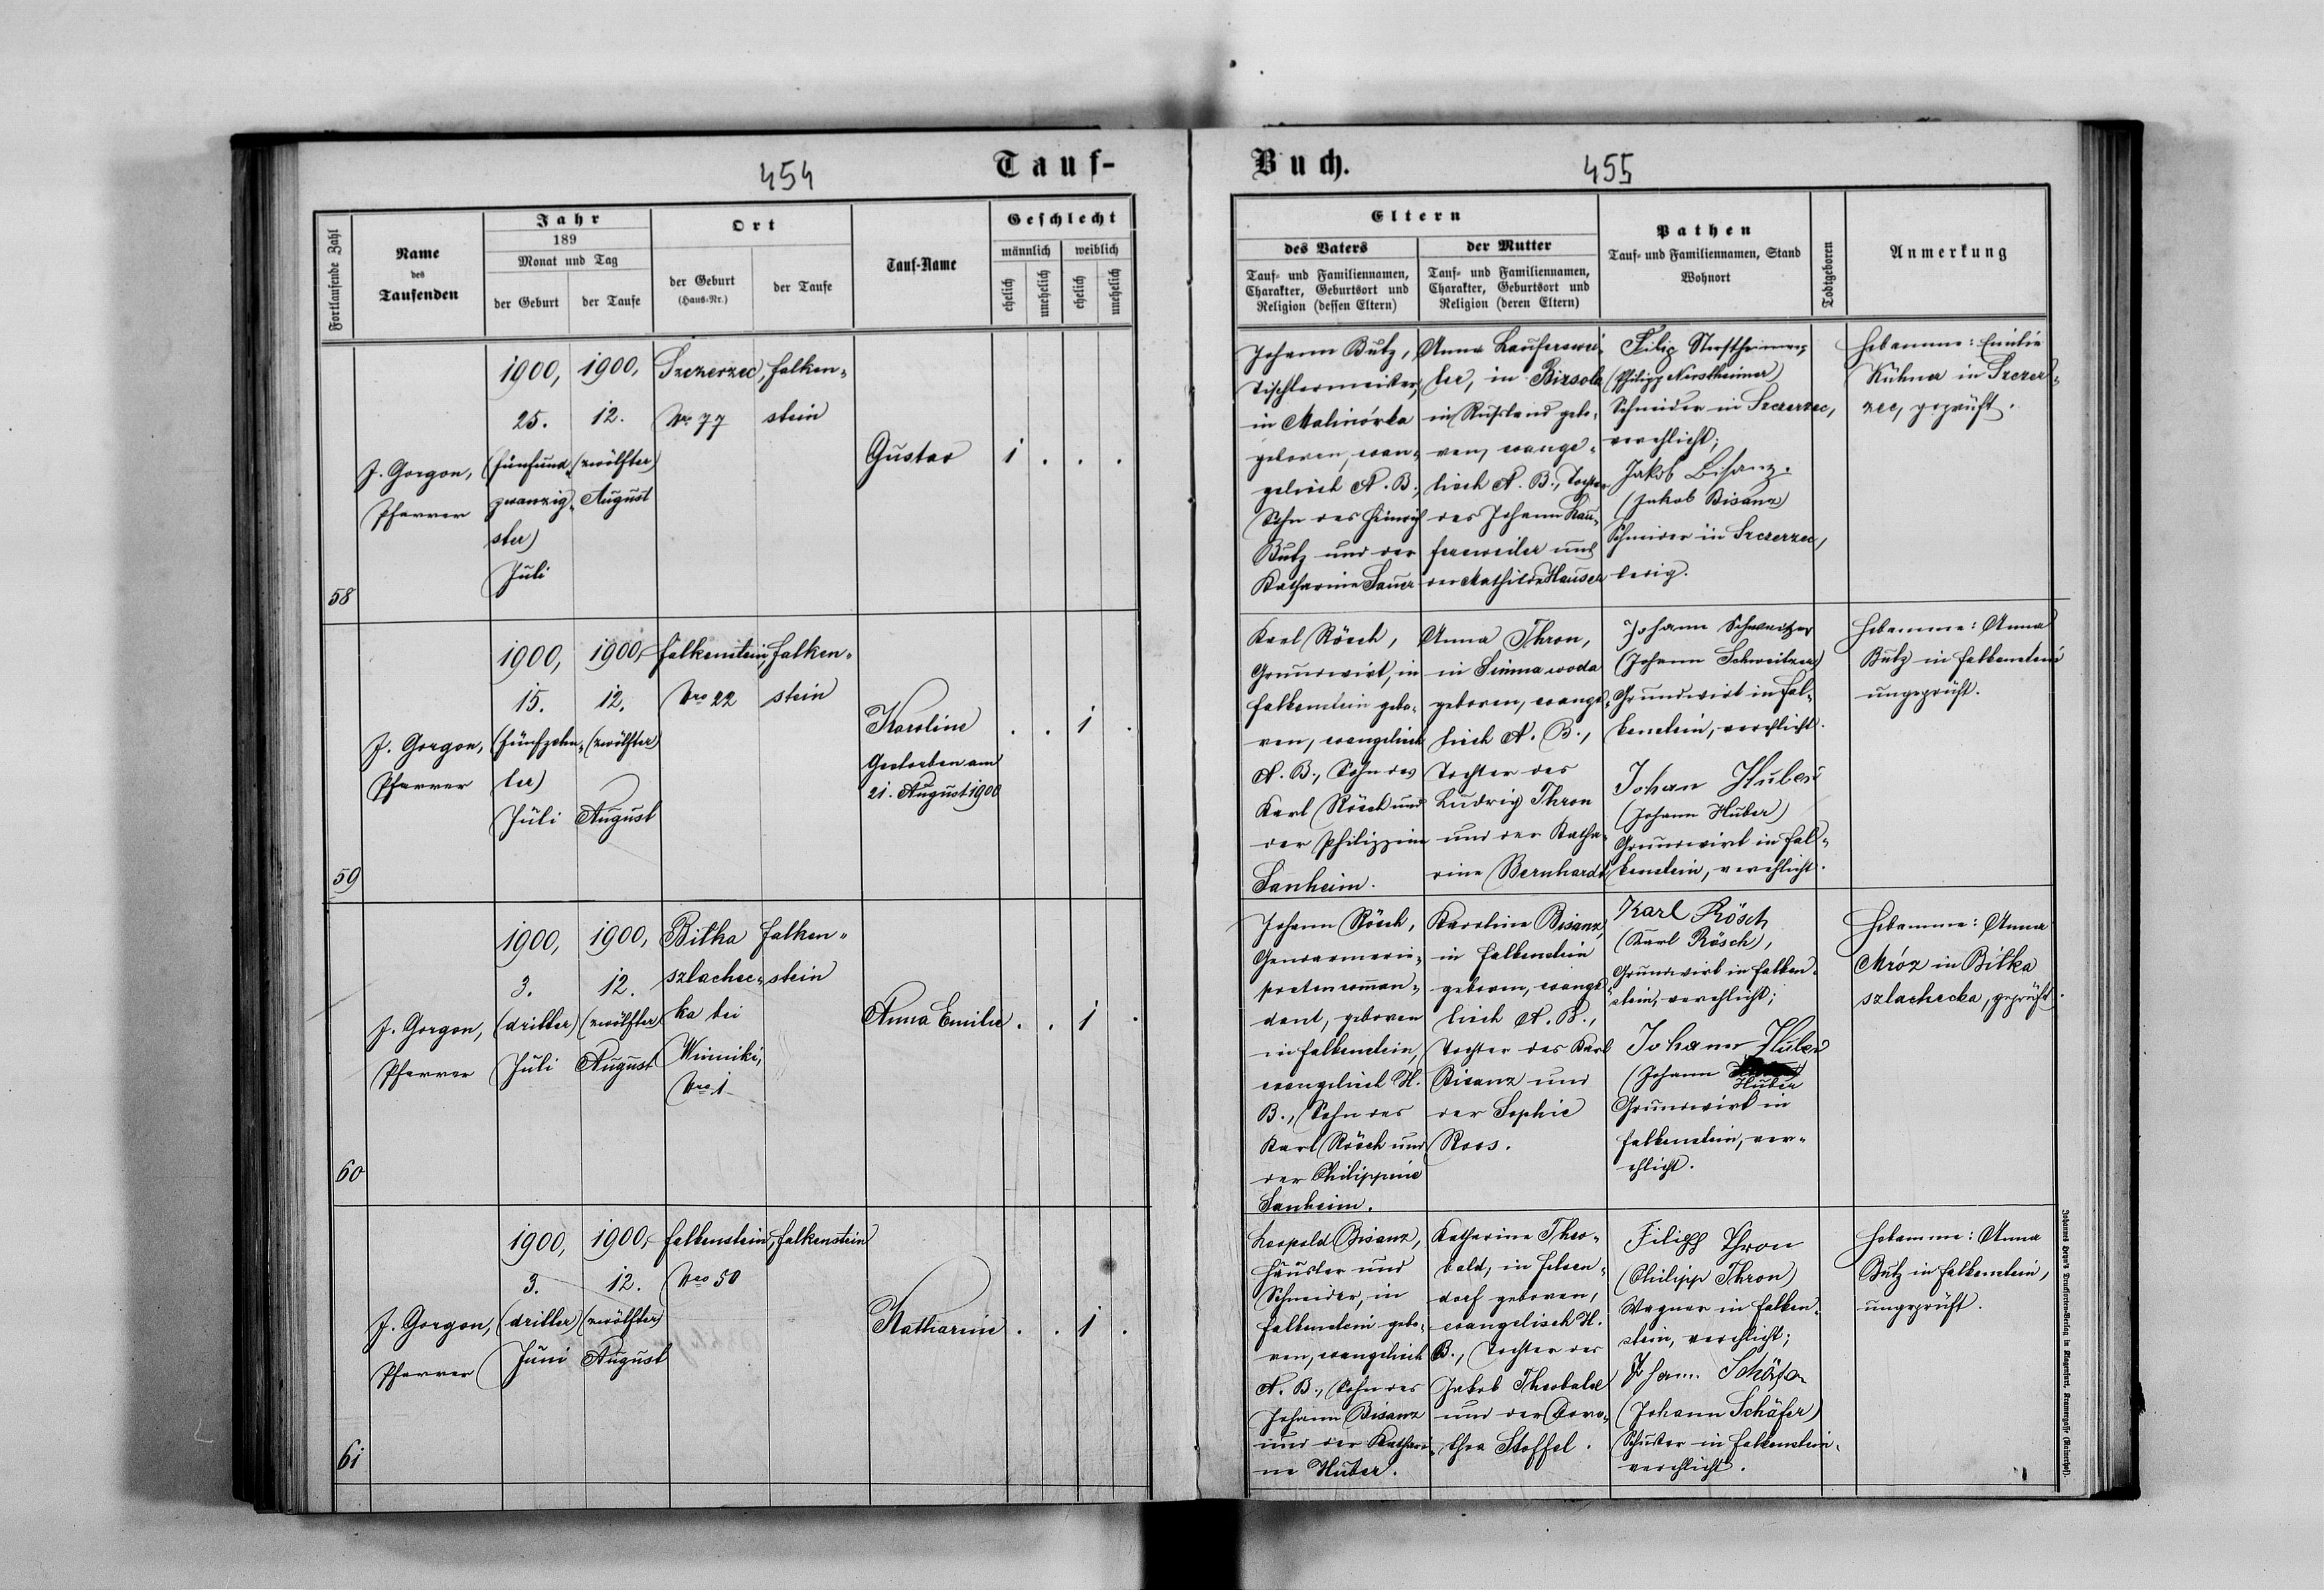 454
Tauf-
Fortlaufende Zahl
Name
des
Taufenden
Jahr
189
Monat und Tag
der Geburt
der Taufe
Ort
der Geburt
(Haus-Nr.)
der Taufe
Tauf-Name
Geschlecht
männlich
weiblich
ehelich
unehelich
ehelich
unehelich
58
J. Gorgon,
Pfarrer
1900,
25.
(fünfund
zwanzig-
ster)
Juli
1900,
12.
(zwölfter)
August
Szczerzec,
Nro 77
Falken-
stein
Gustav
1 . . .
59
J. Gorgon,
Pfarrer
1900,
15.
(fünfzehn-
ter)
Juli
1900,
12.
(zwölfter)
August
Falkenstein,
Nro 22
Falken-
stein
Karoline
Gestorben am
21. August 1900
. . 1 .
60
J. Gorgon,
Pfarrer
1900,
3.
(dritter)
Juli
1900,
12.
(zwölfter)
August
Bitka
szlachec-
ka bei
Winniki,
Nro 1
Falken-
stein
Anna Emilie
. . 1 .
61
J. Gorgon,
Pfarrer
1900,
3.
(dritter)
Juni
1900,
12.
(zwölfter)
August
Falkenstein,
Nro 50
Falkenstein
Katharine
. . 1 .
Buch.
455
Eltern
des Vaters
Tauf- und Familiennamen,
Charakter, Geburtsort und
Religion (dessen Eltern)
der Mutter
Tauf- und Familiennamen,
Charakter, Geburtsort und
Religion (deren Eltern)
Pathen
Tauf- und Familiennamen, Stand
Wohnort
Todtgeboren
Anmerkung
Johann Butz,
Tischlermeister,
in Malinówka
geboren, evan-
gelisch A. B.,
Sohn des Heinrich
Butz und der
Katharine Sauer
Anna Lauferswei-
ler, in Birsola
in Rußland gebo-
ren, evange-
lisch A. B., Tochter
des Johann Lau-
fersweiler und
der Mathilde Hauser
Filip
(Philipp Nerstheimer)
Schneider in Szczerzec,
verehlicht;
Jakob Bisanz.
(Jakob Bisanz)
Schneider in Szczerzec,
ledig.
Hebamme: Emilie
Kühner in Szczer-
zec, geprüft.
Karl Rösch,
Grundwirt, in
Falkenstein gebo-
ren, evangelisch
A. B., Sohn des
Karl Rösch und
der Philippine
Sanheim.
Anna Thron,
in Simna woda
geboren, evange-
lisch A. B.,
Tochter des
Ludwig Thron
und der Katha-
rine Bernhardt
Johann Schweitzer
(Johann Schweitzer)
Grundwirt in Fal-
kenstein, verehlicht.
Johan Huber
(Johann Huber)
Grundwirt in Fal-
kenstein, verehlicht.
Hebamme: Anna
Butz in Falkenstein
ungeprüft.
Johann Rösch,
Gendarmerie-
postencomman-
dant, geboren
in Falkenstein,
evangelisch H.
B., Sohn des
Karl Rösch und
der Philippine
Sanheim.
Karoline Bisanz,
in Falkenstein
geboren, evange-
lisch A. B.,
Tochter des Karl
Bisanz und
der Sophie
Roos.
Karl Rösch
(Karl Rösch),
Grundwirt in Falken-
stein, verehlicht;
Johann Huber
(Johann
Huber
Grundwirt in
Falkenstein, ver-
ehlicht.
Hebamme: Anna
Mróz in Bitka
szlachecka, geprüft.
Leopold Bisanz,
Häusler und
Schneider, in
Falkenstein gebo-
ren, evangelisch
A. B., Sohn des
Johann Bisanz
und der Kathari-
ne Huber.
Katharine Theo-
bald, in Felsen-
dorf geboren,
evangelisch H.
B., Tochter des
Jakob Theobald
und der Doro-
thea Stoffel.
Filipp Thron
(Philipp Thron)
Wagner in Falken-
stein, verehlicht;
Johann Schäfer
(Johann Schäfer)
Schuster in Falkenstein,
verehlicht.
Hebamme: Anna
Butz in Falkenstein,
ungeprüft.